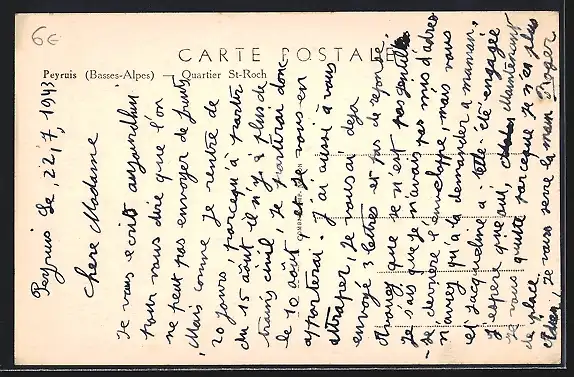 6€
CARTE POSTALE
Peyruis (Basses-Alpes) — Quartier St-Roch
Peyruis le, 22/7, 1942
Chere Madame
Je vous ecrits aujourdhui
pour vous dire que l'on
ne peut pas envoyer de fruits
Mais comme je rentre de
20 jours, parcequ'à partir
du 15 août il n'y à plus de
trains civil, je partirai donc
le 10 août, et je vous en
apporterai. J'ai aussi à vous
attraper, je vous ai deja
envoyé 3 lettres et pas de reponse.
que se n'est pas gentille
Je sais que je n'avais pas mis d'adres
-se derriere l'enveloppe, mais vous
n'aviez qu'à la demander à maman,
et Jacqueline a-telle été engagée
J'espère que oui, Maintenant
je vous quitte parceque je n'ai plus
de place.
je vous serre la main Roger